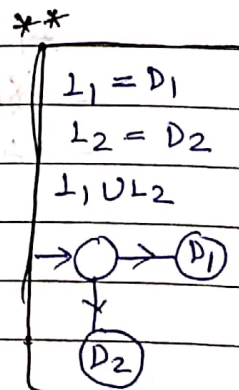 **
L₁ = D₁
L₂ = D₂
L₁ ∪ L₂
D₁
D₂